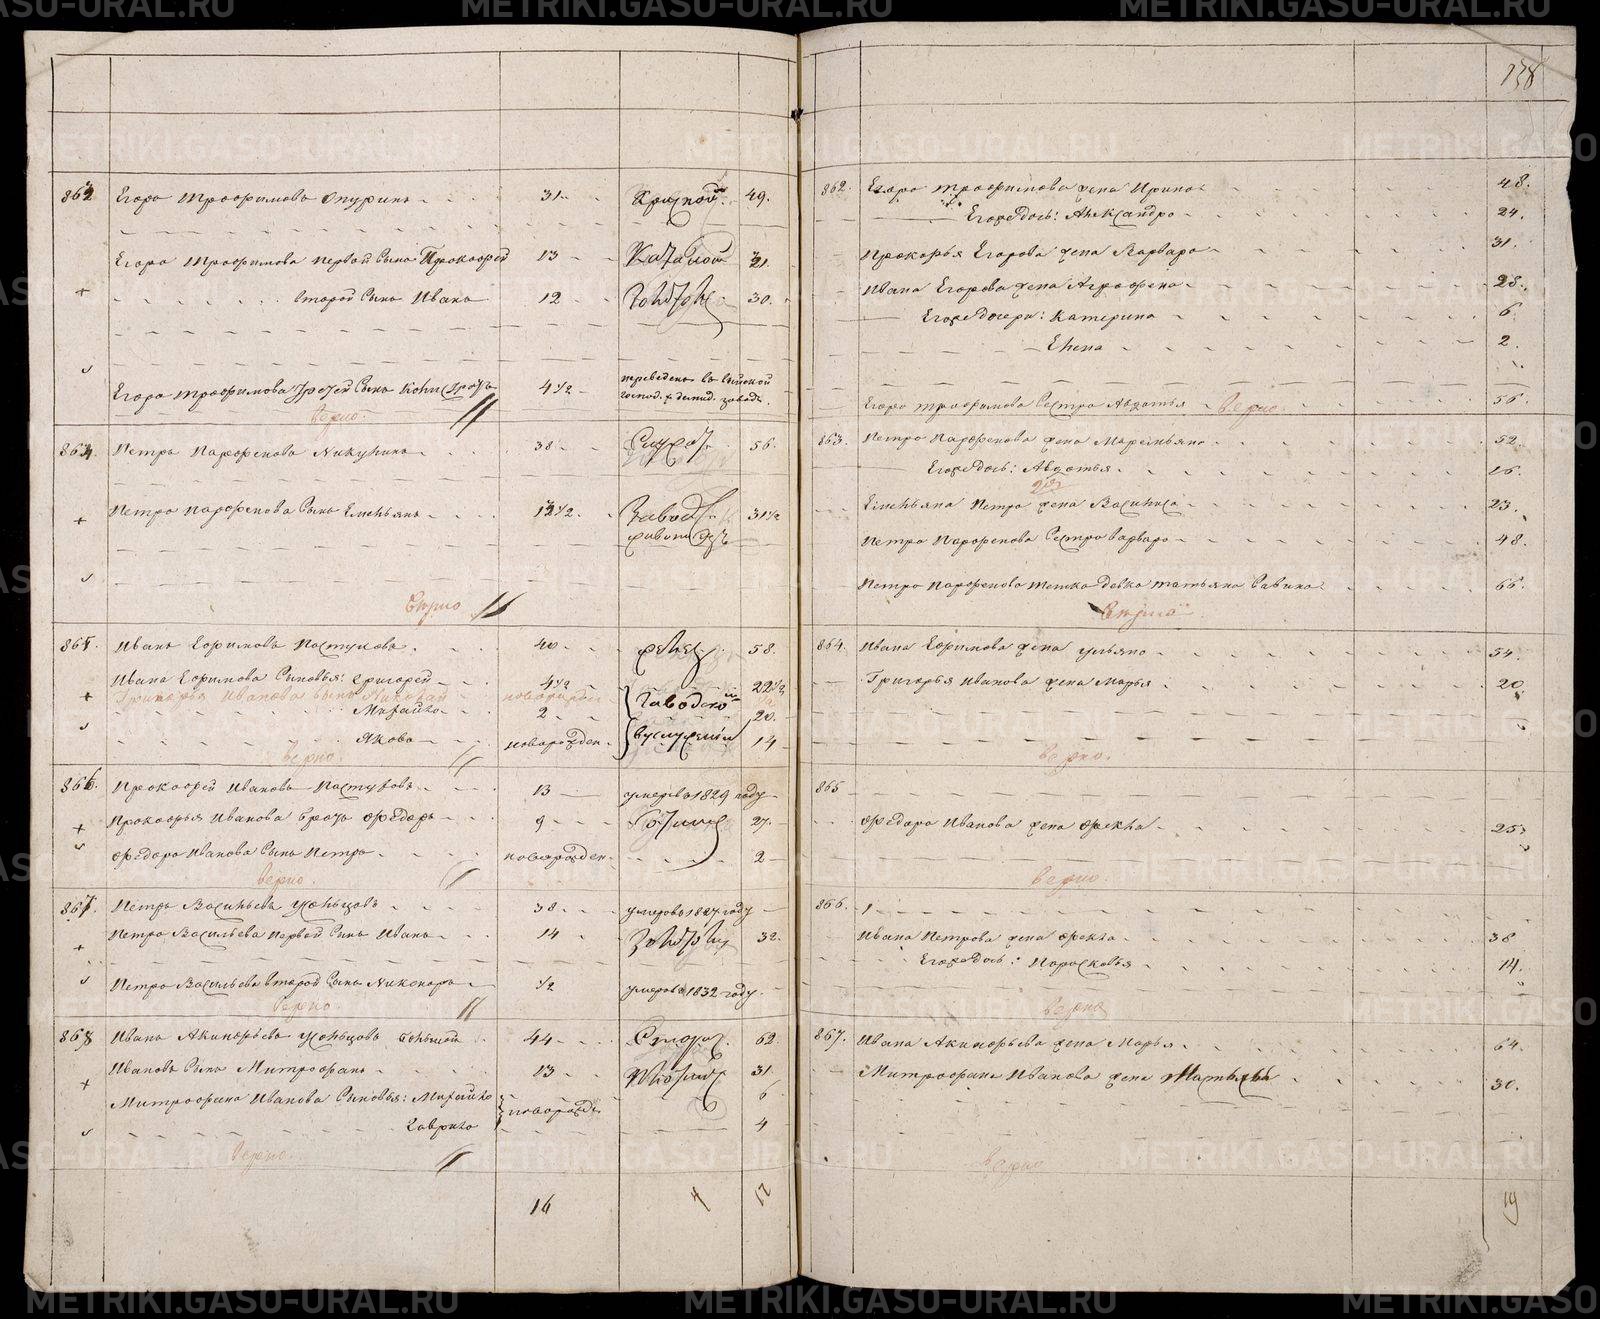 METRIKI.GASO-URAL.RU
138
862
Егоръ Трофимовъ
31
49.
Егора Трофимова первой сынъ Прокофей
13
31
второй сынъ Иванъ
12
30.
Егора Трофимова третей сынъ
4 1/2
переведенъ въ
верно.
Петръ Парфеновъ Никулинъ
38
56
Петра Парфенова сынъ Емельянъ
13 1/2
31 1/2
верно
Иванъ Ефимовъ Пастуховъ
40
58.
Ивана Ефимова сыновья: Григорей
4 1/2
22 1/2
Григорья Иванова сынъ Николай
новорожден
Михайло
2
20.
Яковъ
новорожден.
14
верно.
866.
Прокофей Ивановъ Пастуховъ
13
умеръ в 1829 году
Прокофья Иванова братъ Федоръ
9
27.
Федора Иванова сынъ Петръ
новорожден.
2
верно.
867.
Петръ Васильевъ Усольцовъ
38
умеръ в 1827 году
Петра Васильева первой сынъ Иванъ
14
32.
Петра Васильева второй сынъ Никаноръ
1/2
умеръ в 1832 году.
верно.
868
Иванъ Акинфьевъ Усольцовъ большой
44
62
Ивановъ сынъ Митрофанъ
13
31.
Митрофана Иванова сыновья: Михайло
новорожд.
6
Гаврило
4
верно.
16
4
12
862.
Егора Трофимова жена Ирина
48.
Его же дочь: Александра
24.
Прокофья Егорова жена Варвара
31.
Ивана Егорова жена Аграфена
28.
Его же дочери: Катерина
6
Елена
2.
Егора Трофимова сестра Авдотья
верно
56.
863.
Петра Парфенова жена Маремьяна
52.
Его же дочь: Авдотья
16.
Емельяна Петрова жена Василиса
23.
Петра Парфенова сестра Варвара
48.
Петра Парфенова тетка девка Татьяна Савина
66.
верно
864.
Ивана Ефимова жена Ульяна
54.
Григорья Иванова жена Марья
20
верно.
865
Федора Иванова жена Фекла
25
верно.
866.
Ивана Петрова жена Фекла
38
Его же дочь: Парасковья
14.
верно
867.
Ивана Акинфьева жена Марья
64.
Митрофана Иванова жена
30.
верно
19